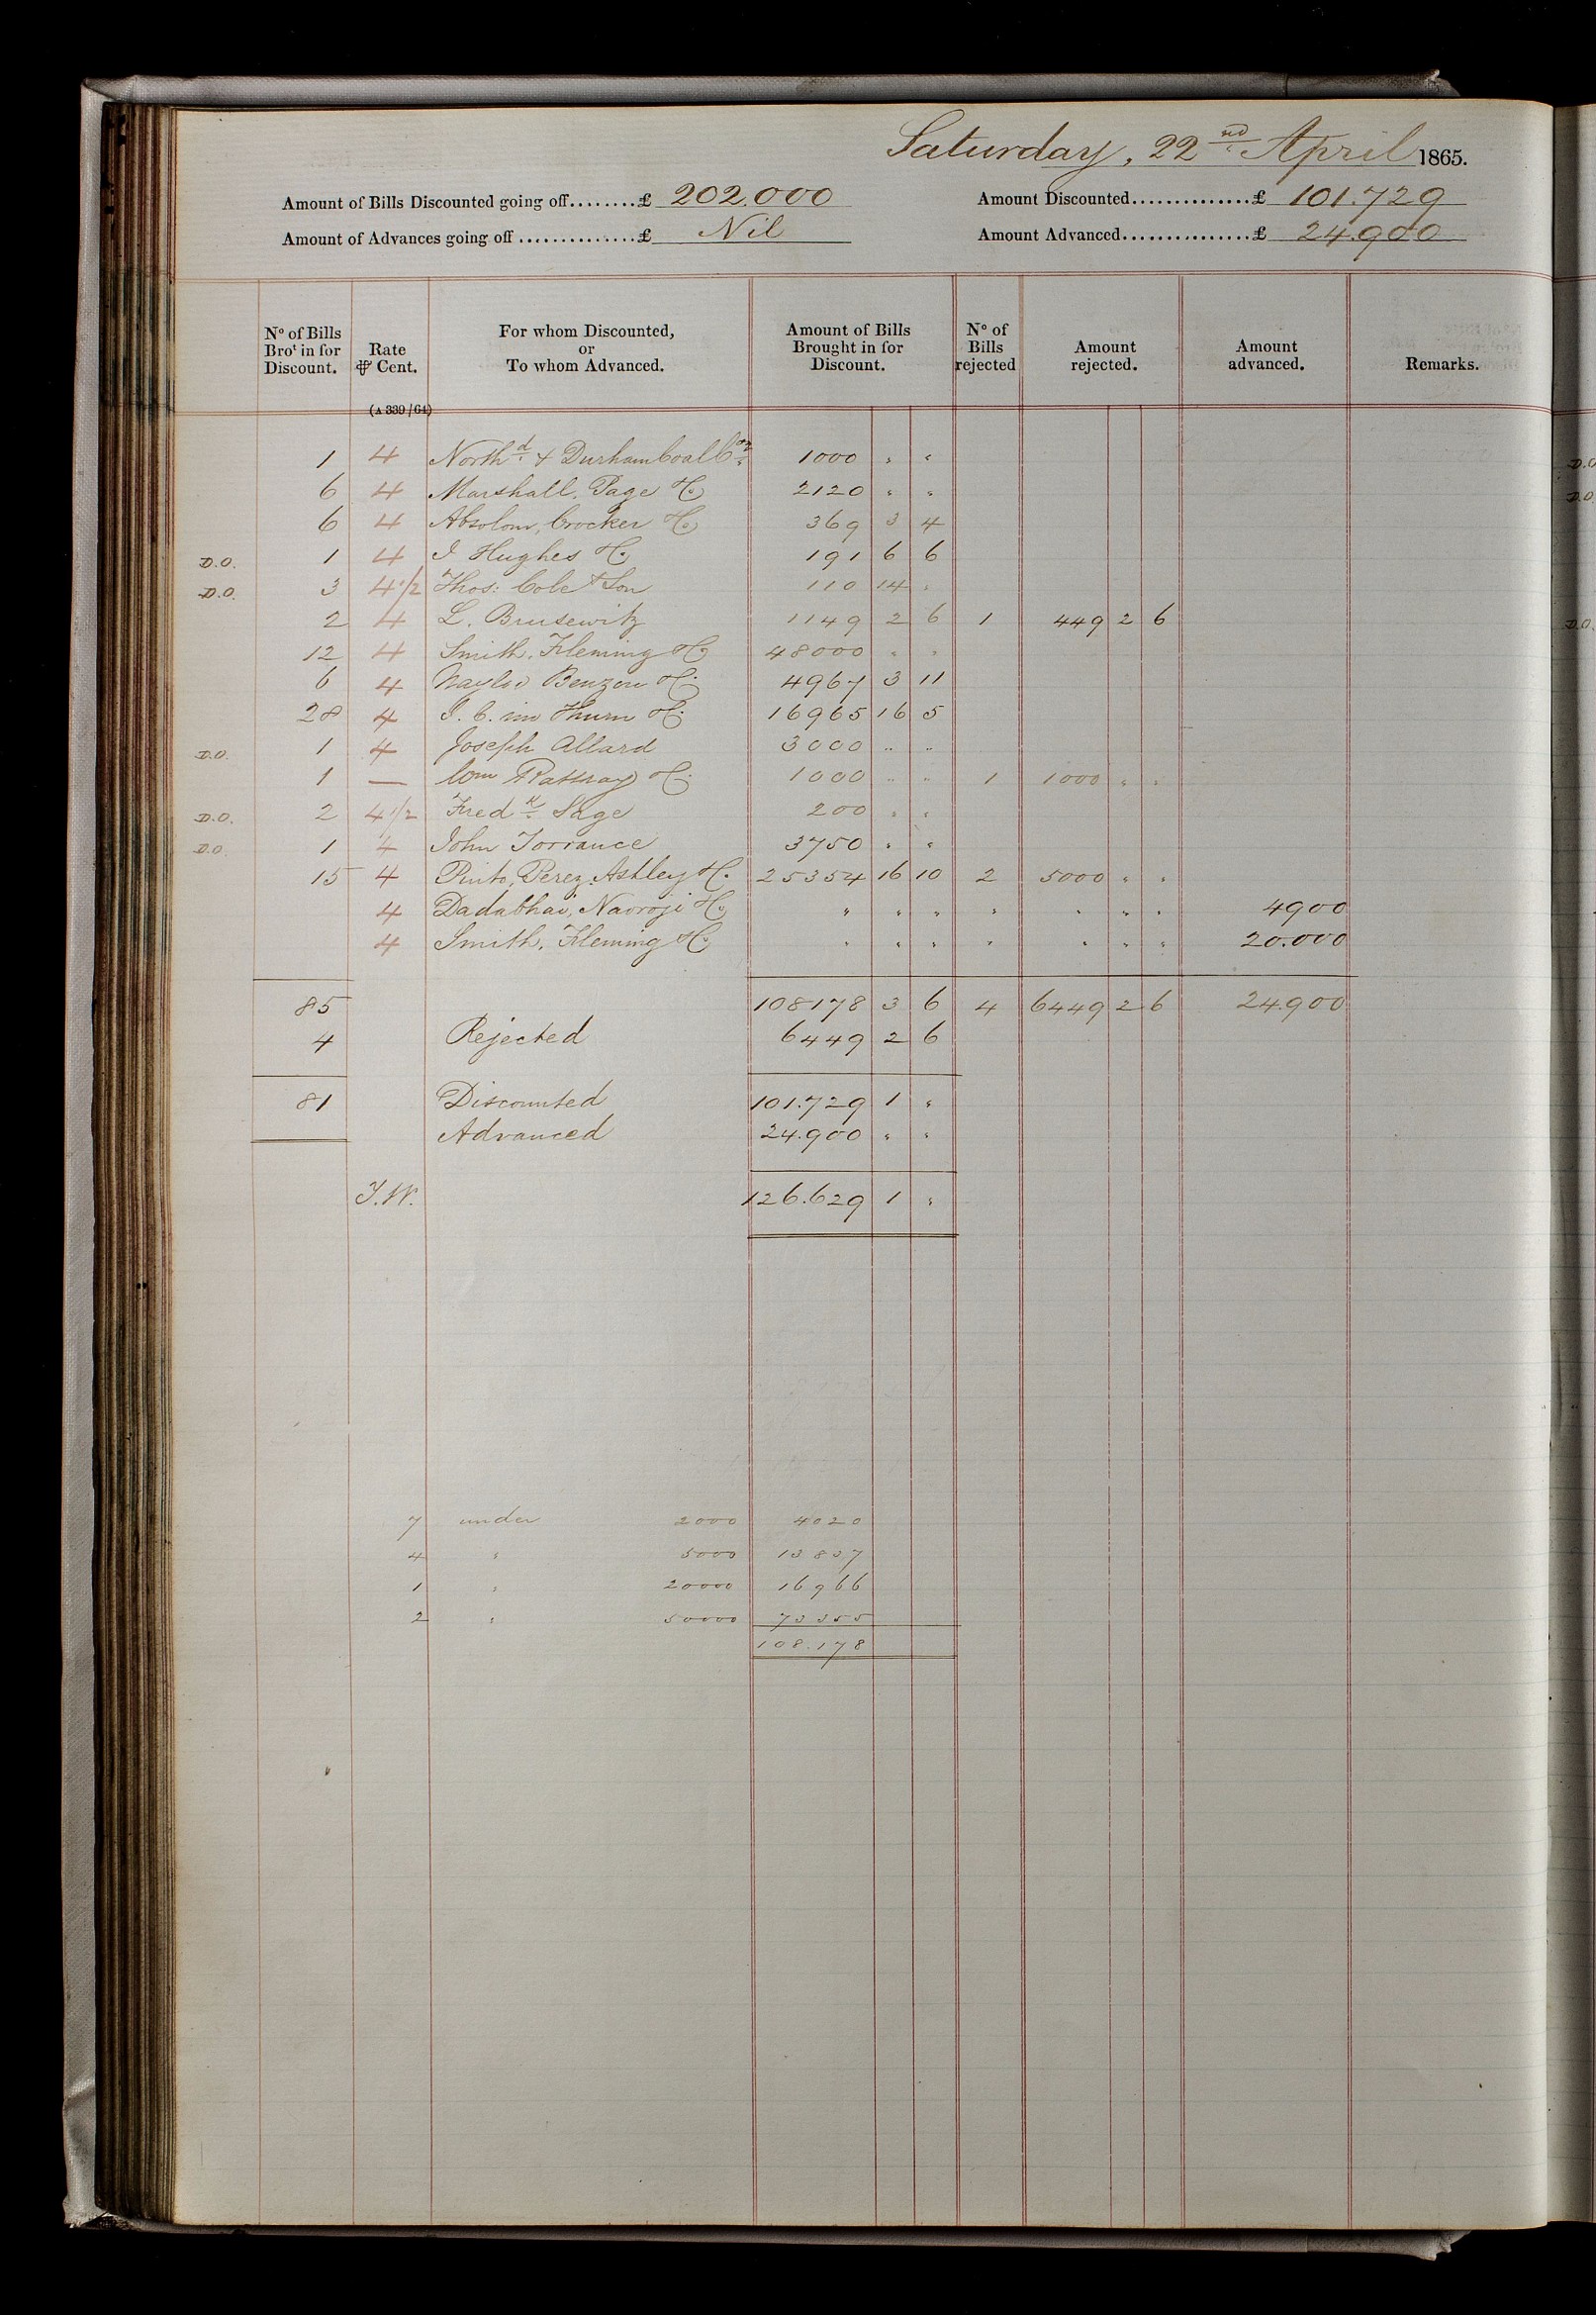 Saturday, 22nd April 1865.
Amount of Bills Discounted going off........£ 202.000 Amount Discounted..............£ 101.729
Amount of Advances going off ..............£ Nil Amount Advanced...............£ 24.900
No of Bills Brot in for Discount. Rate ⅌ Cent. For whom Discounted, or To whom Advanced. Amount of Bills Brought in for Discount. No of Bills rejected Amount rejected. Amount advanced. Remarks.
(A 339/64)
1 4 Northd & Durham Coal Coy 1000 " "
6 4 Marshall, Page & Co 2120 " "
6 4 Absolom, Crocker & Co 369 3 4
D.O. 1 4 I Hughes & Co 191 6 6
D.O. 3 4 1/2 Thos: Cole & Son 110 14 "
2 4 L. Brusewitz 1149 2 6 1 449 2 6
12 4 Smith, Fleming & Co 48000 " "
6 4 Naylor Benzon & Co 4967 3 11
28 4 I. C. im Thurn & Co 16965 16 5
D.O. 1 4 Joseph Allard 3000 " "
1 — Rattray & Co 1000 " " 1 1000 " "
D.O. 2 4 1/2 Fredk Sage 200 " "
D.O. 1 4 John Torrance 3750 " "
15 4 Pinto, Perez, Ashley & Co 25354 16 10 2 5000 " "
4 Dadabhai, Naoroji & Co " " " " " " " 4900
4 Smith, Fleming & Co " " " " " " " 20.000
85 108178 3 6 4 6449 2 6 24.900
4 Rejected 6449 2 6
81 Discounted 101.729 1 "
Advanced 24.900 " "
J.W. 126.629 1 "
7 under 2000 4020
4 " 5000 13837
1 " 20000 16966
2 " 50000 73355
108.178
D.O.
D.O.
D.O.